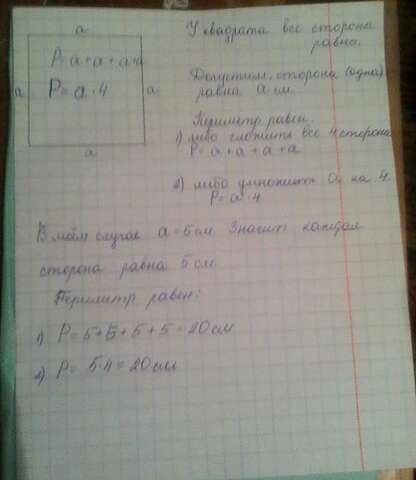 a
P=a+a+a+a
P=a·4
a
a
a
У квадрата все стороны
равны.
Допустим, сторона (одна)
равна a см.
Периметр равен
1) либо сложить все 4 стороны
P=a+a+a+a
2) либо умножить a на 4.
P=a·4
В моём случае a=5см Значит каждая
сторона равна 5 см
Периметр равен:
1) P=5+5+5+5=20см
2) P=5·4=20см